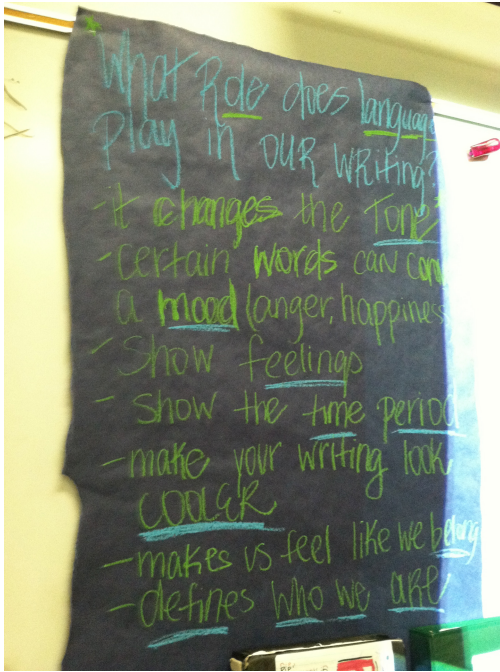 What Role does language
Play in OUR WRiting?
- it changes the Tone
- certain words can
a mood (anger, happiness
- Show feelings
- show the time period
- make your writing look
COOLER
- makes us feel like we belong
- defines who we are